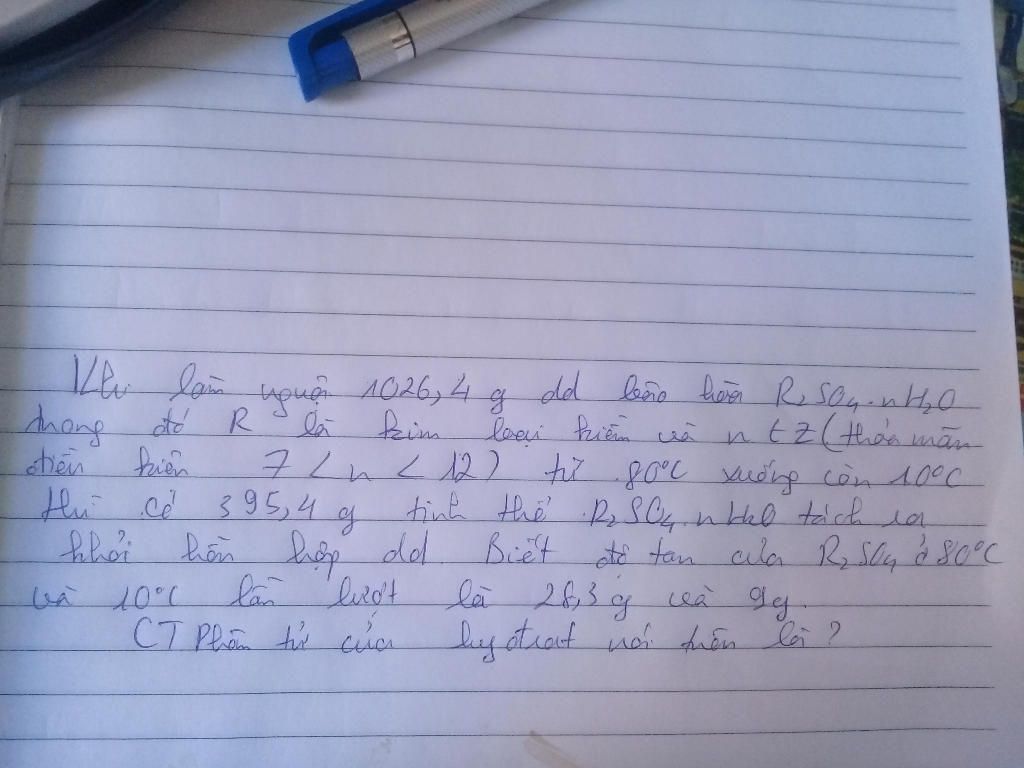 Khi làm nguội 1026,4 g dd bão hòa R₂SO₄.nH₂O
trong đó R là kim loại kiềm và n ∈ Z (thỏa mãn
điều kiện 7 < n < 12) từ 80°C xuống còn 10°C
thì có 395,4 g tinh thể R₂SO₄.nH₂O tách ra
khỏi hỗn hợp dd. Biết độ tan của R₂SO₄ ở 80°C
và 10°C lần lượt là 28,3 g và 9g.
CT Phân tử của hyđrat nói trên là?